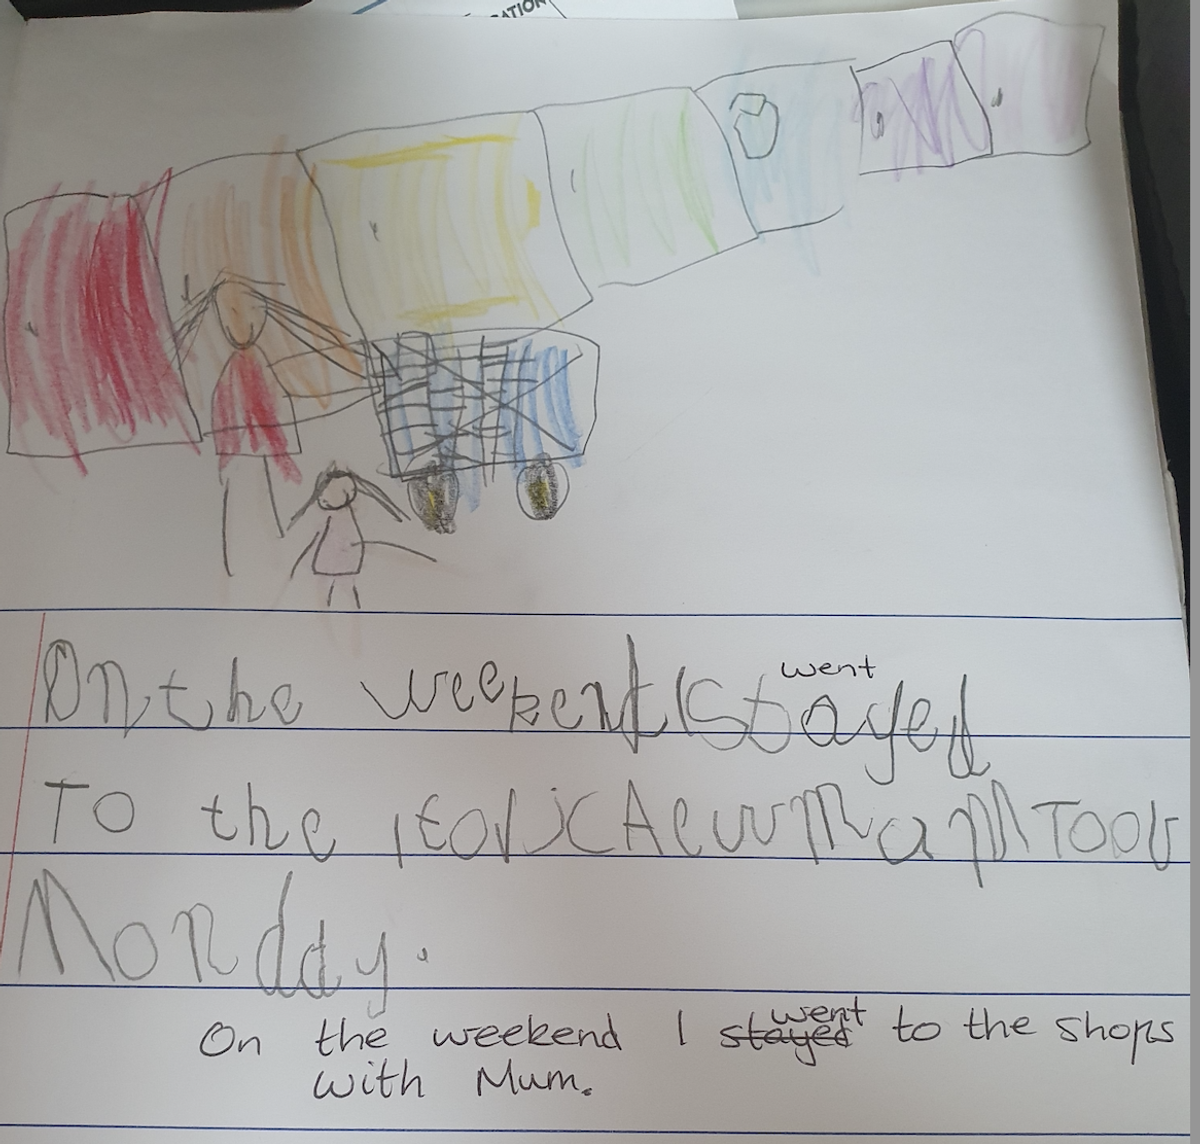 ATION
went
On the weekent I stayed
To the
Monday.
went
On the weekend I stayed to the shops
with Mum.